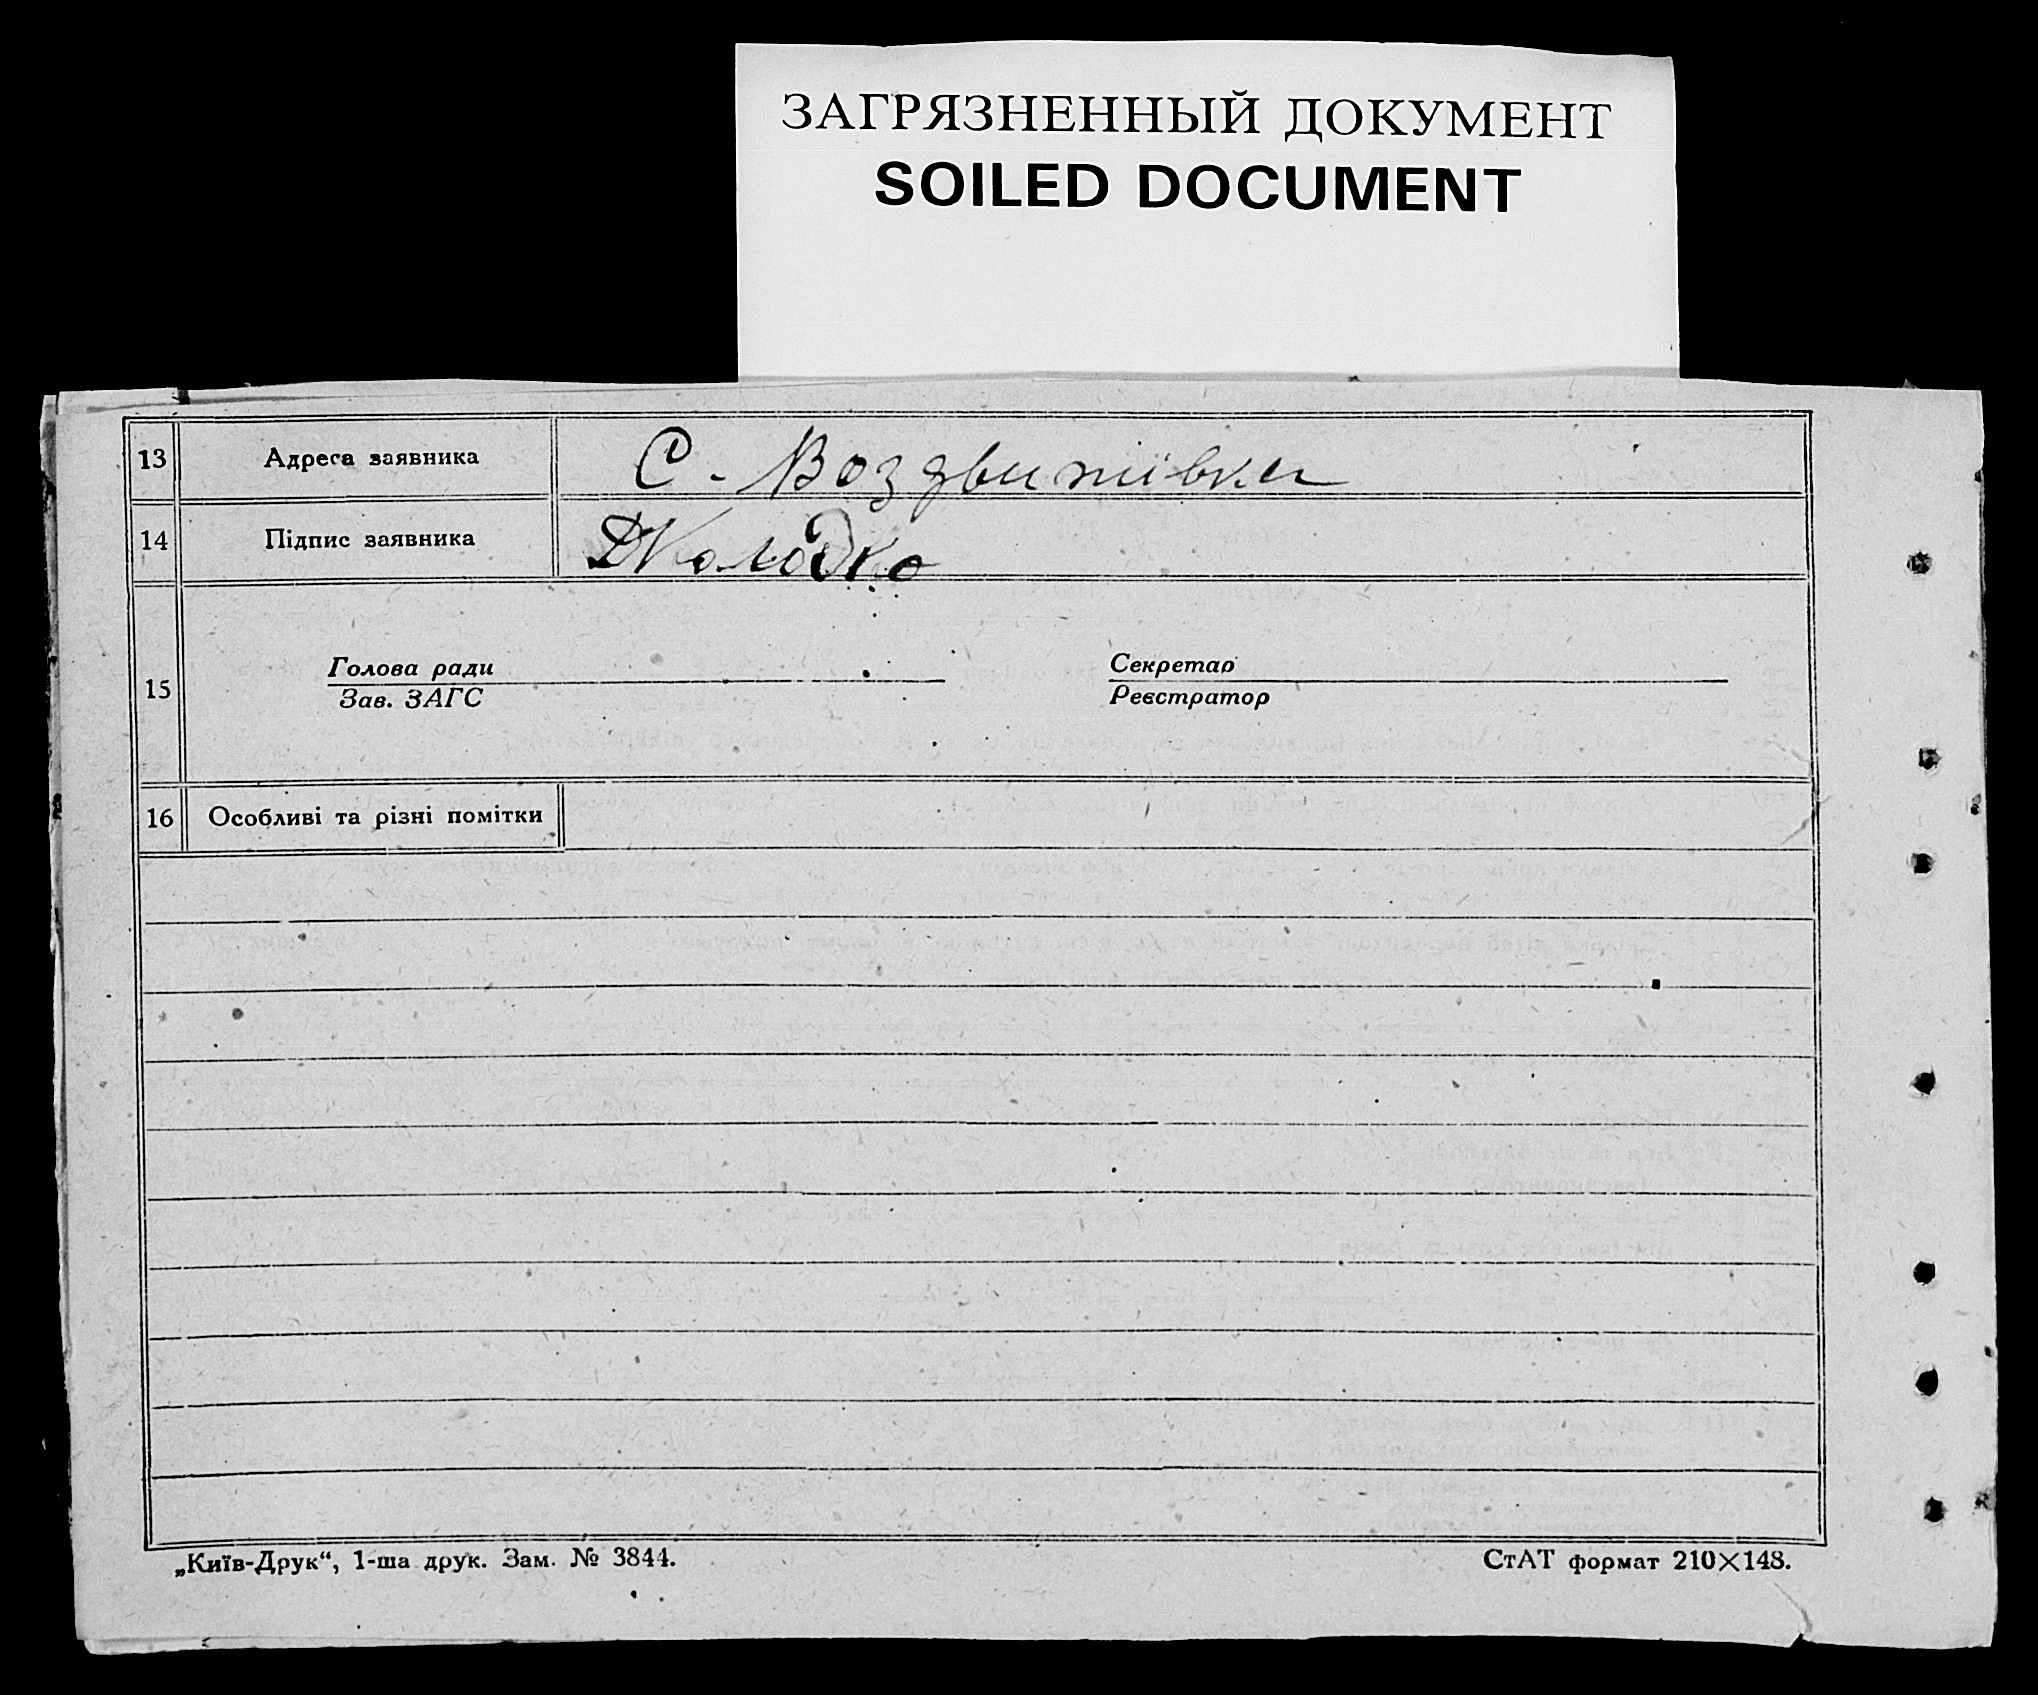 ЗАГРЯЗНЕННЫЙ ДОКУМЕНТ
SOILED DOCUMENT
13 Адреса заявника С. Воздвижівка
14 Підпис заявника ДКолодко
15 Голова ради Секретар
Зав. ЗАГС Реєстратор
16 Особливі та різні помітки
„Київ-Друк“, 1-ша друк. Зам. № 3844. СтАТ формат 210×148.